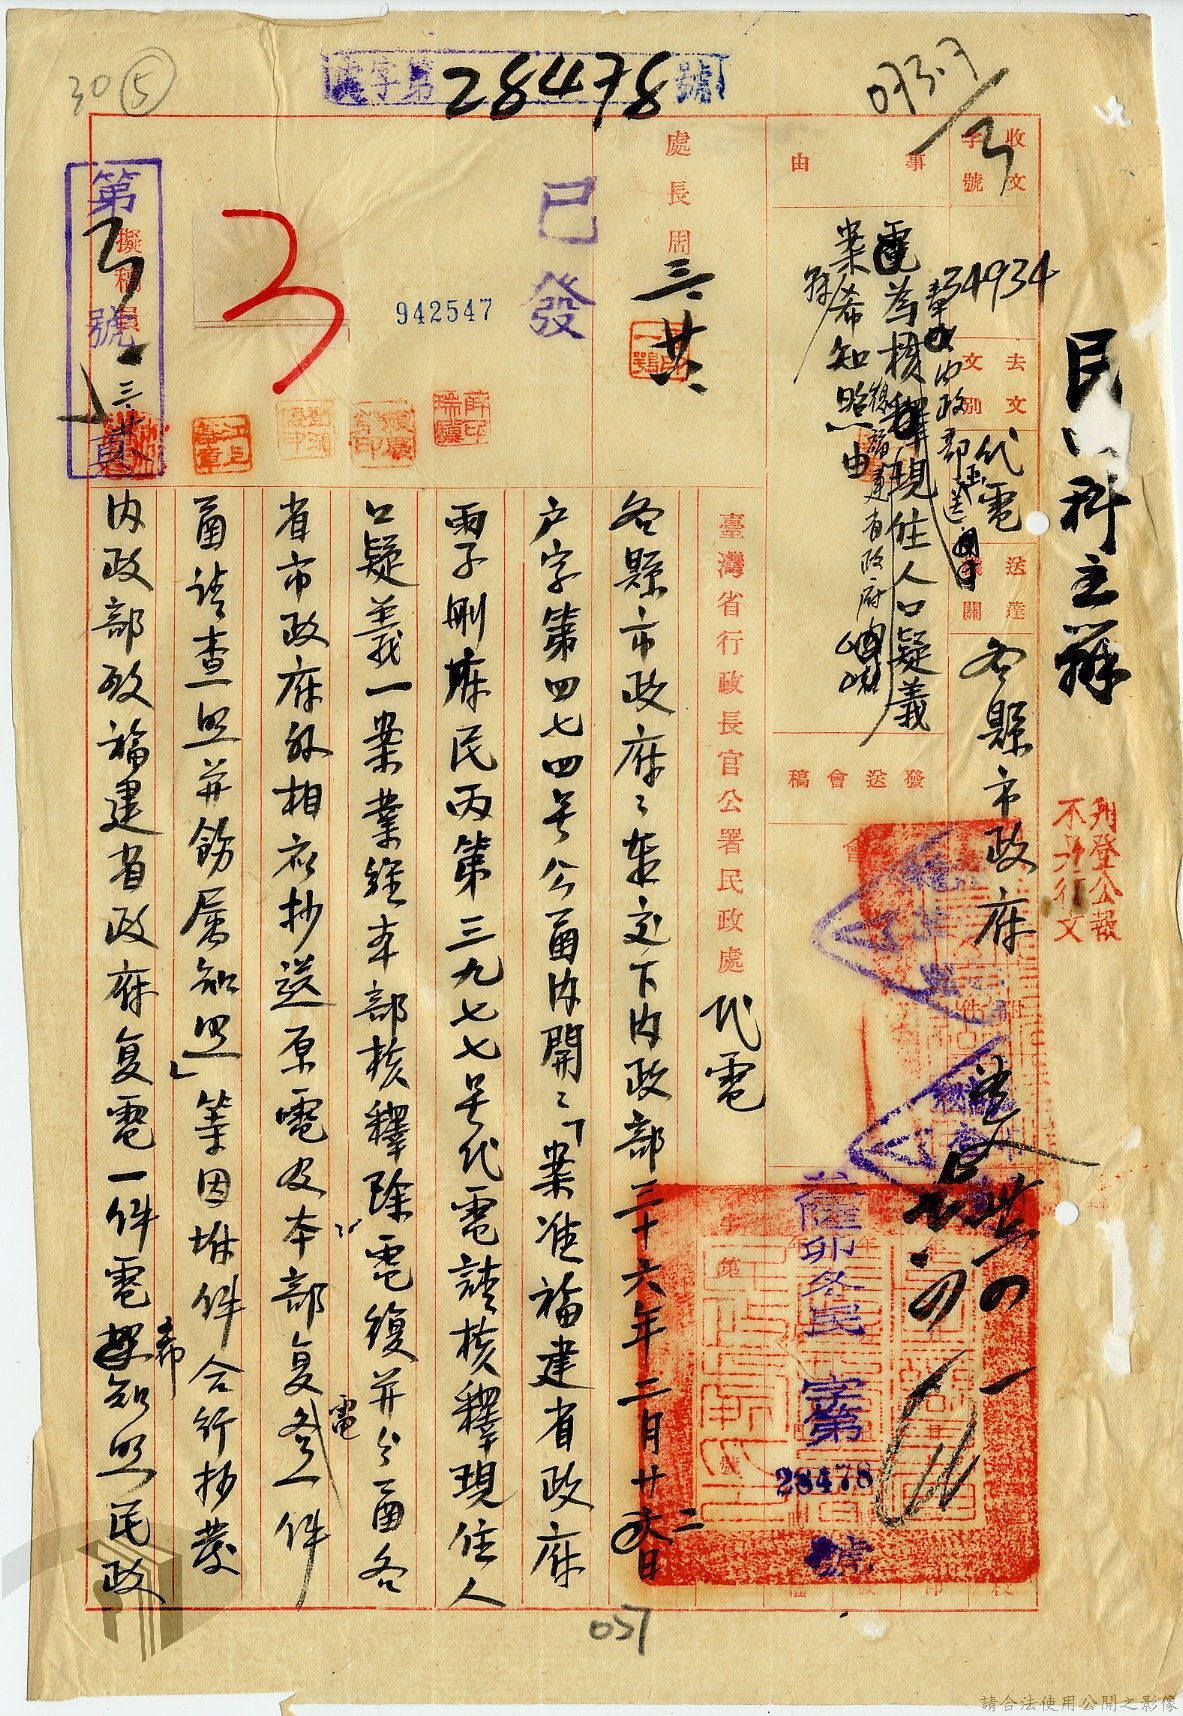 民字第28478號
30 ⑤
073.7/3
民 科主辦
收文
字號
34934
去文
文別
代電
送達
機關
各縣市政府
附件
刊登公報
不另行文
事由
奉內政部函送
電為核釋現住人口疑義
復福建省政府
案希知照由
發送會稿
處長周
三、廿六
已發
942547
第3號
擬稿員
臺灣省行政長官公署民政處 代電
薩卯冬民 字第
28478
號
各縣市政府:奉交下內政部三十六年二月廿二日
户字第四七四号公函內開:「案准福建省政府
雨子刪府民丙第三九七七号代電請核釋現住人
口疑義一案業經本部核釋除電復并分函各
省市政府外相應抄送原電及本部复電一件
函請查照并飭屬知照」等因坿件合行抄發
內政部致福建省政府复電一件電希知照民政
037
請合法使用公開之影像